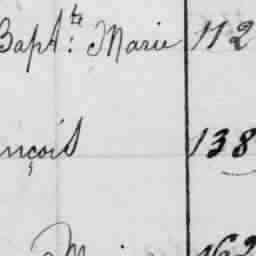 Bapt.te Marie 112
nçois 138
162